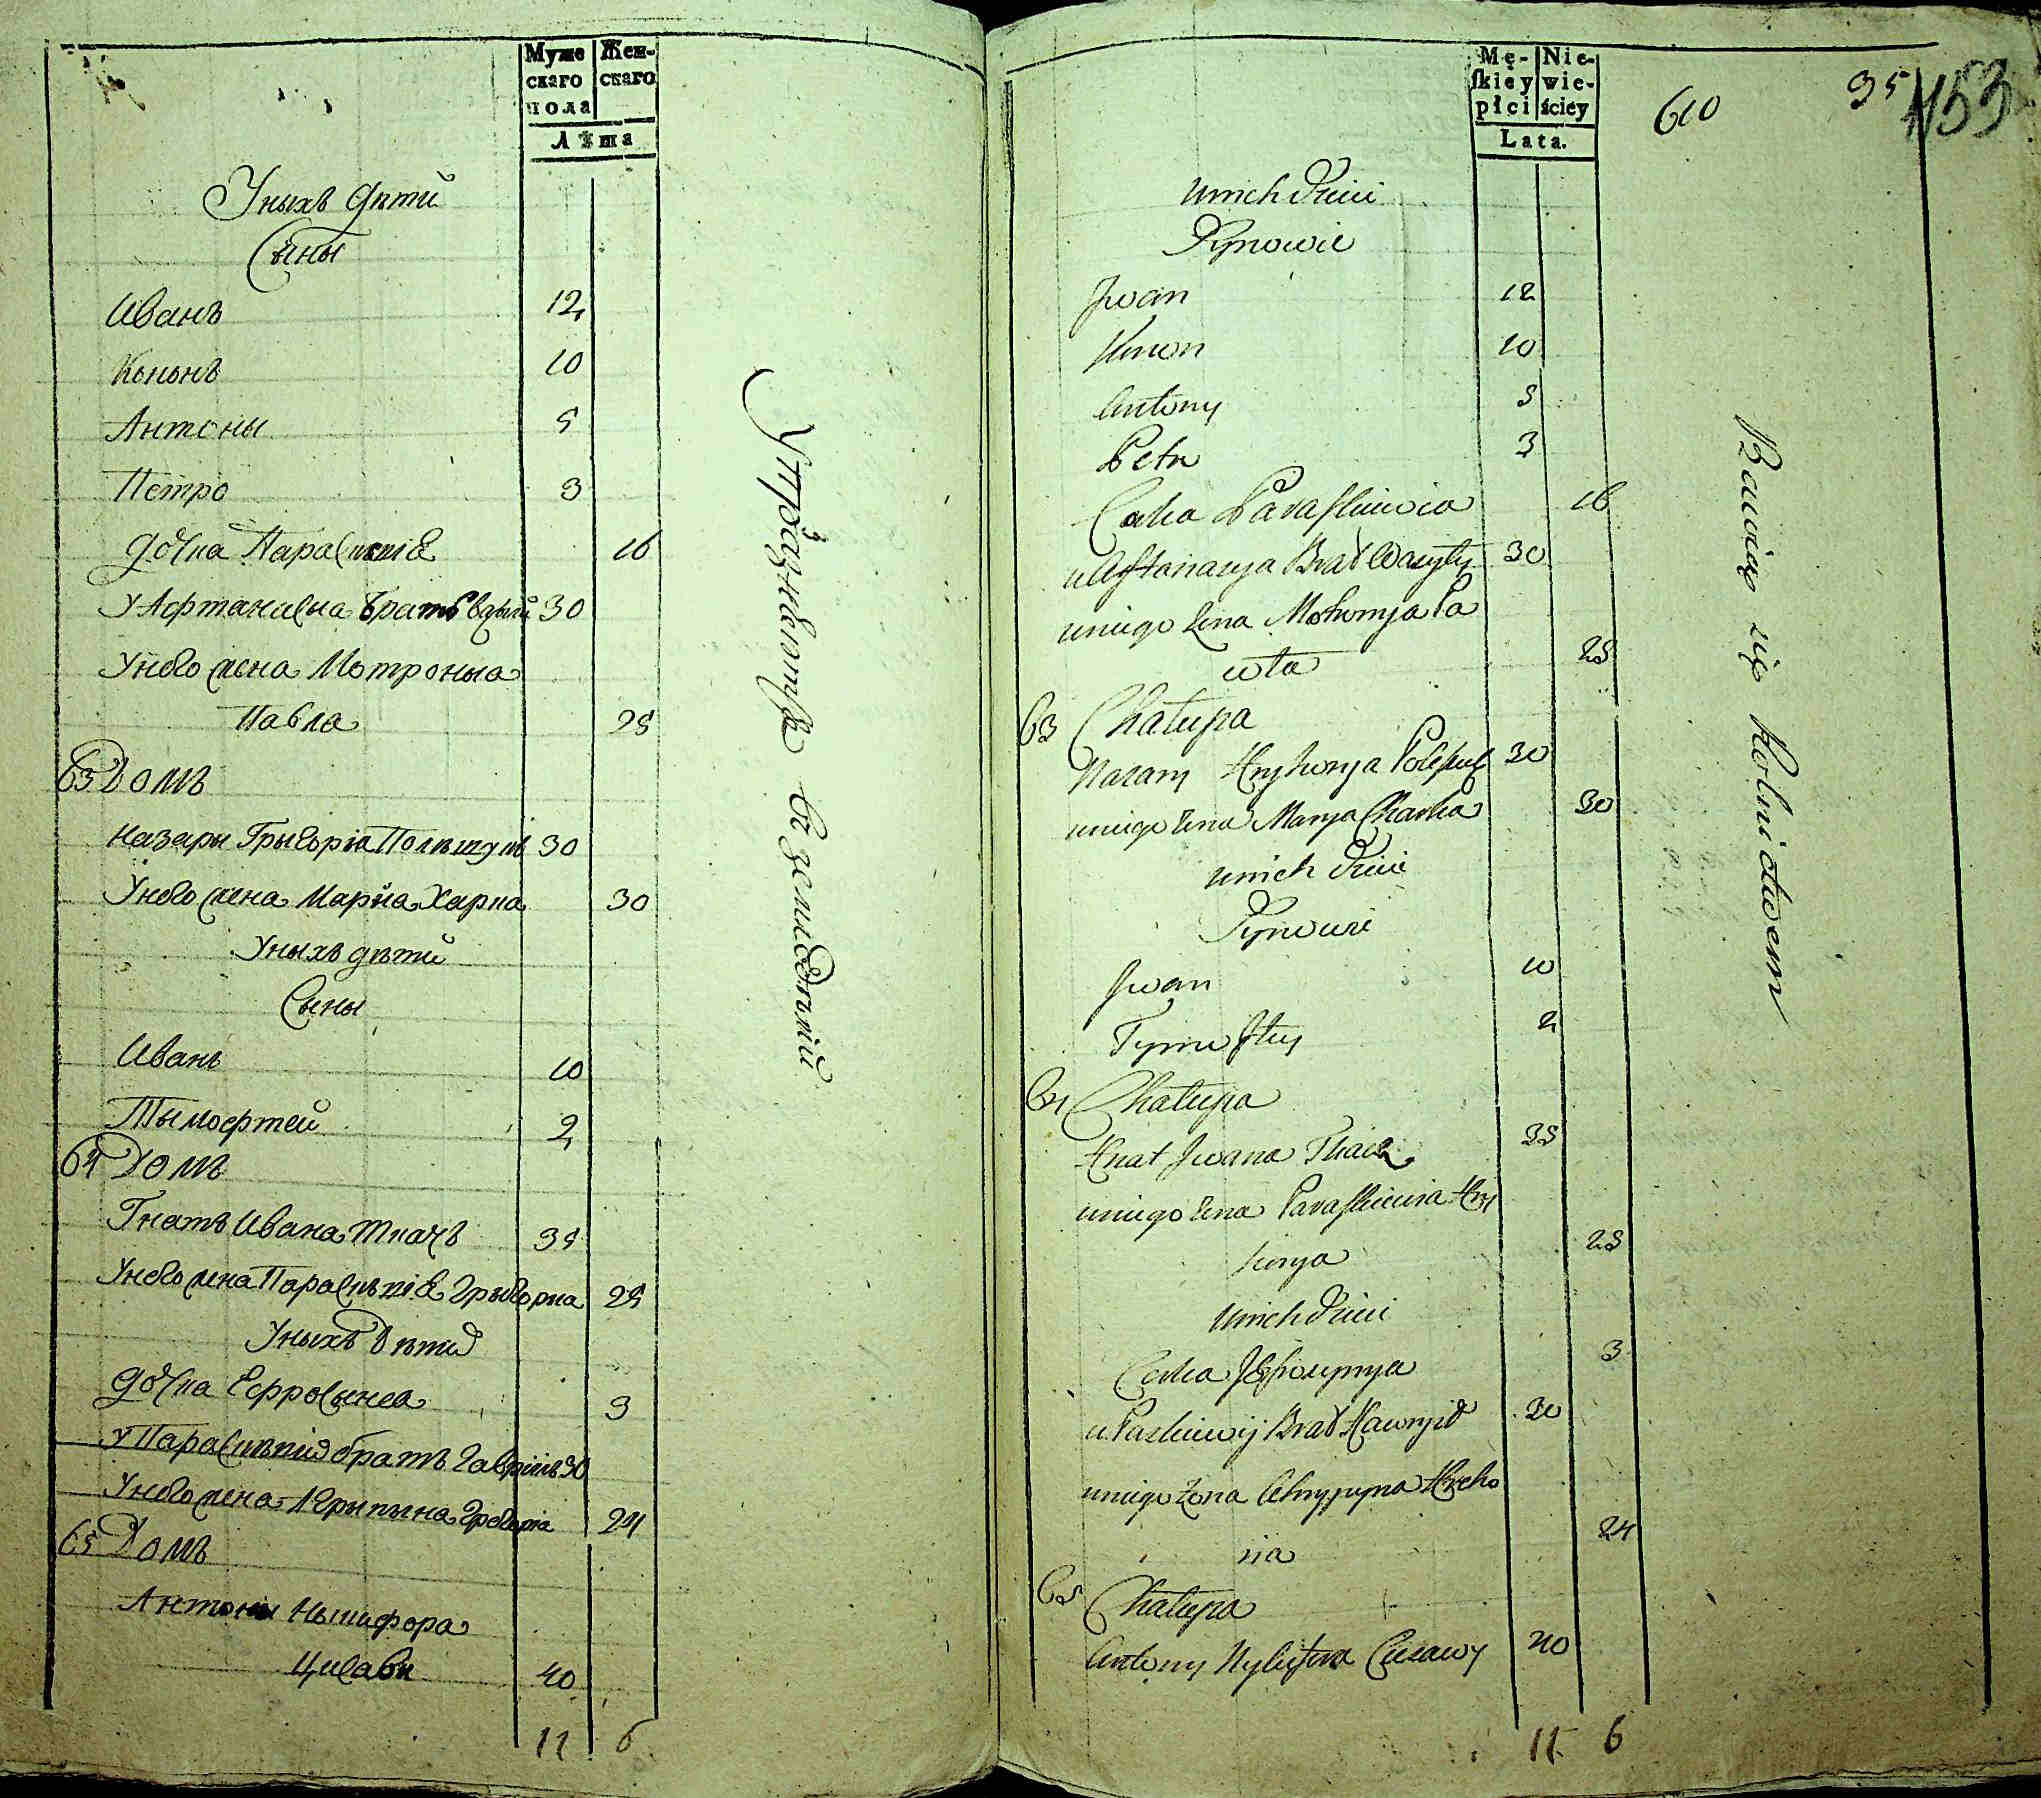 Муже
скаго
пола
Жен-
скаго
Лѣта
Уныхъ дѣти
Сыны
Иванъ 12
Кононъ 10
Антоны 5
Петро 3
дочка Параскевіа 16
У Афтанасыа братъ Василь 30
Унего жена Мотроныа
Павла 25
63 Домъ
Назары Грыгоріа Полещукъ 30
Унего жена Марйа Харка 30
Уныхъ дѣти
Сыны
Иванъ 10
Тымофтей 2
64 Домъ
Гнатъ Ивана Ткачъ 35
Унего жена Параскевіа Грыгорыа 25
Уныхъ Дѣти
дочка Ефросынеа 3
У Параскевіи братъ Гавріилъ 30
Унего жена Агрыпына Грегоріа 24
65 Домъ
Антоны Ныкифора
Цисавы 40
11 6
Упражняется въ земледѣліи
Mę-
skiey
płci
Nie-
wie-
ściey
Lata.
610
35
153
Unich dzieci
Synowie
Jwan 12
Konon 10
Antony 5
Petro 3
Corka Paraskiewia 16
u Aftanasya Brat Wasyly 30
uniego żona Motronya Pa
wła 25
63 Chałupa
Nazary Hryhorya Poleszuk 30
uniego żona Marya Charka 30
unich dzieci
Synowie
Jwan 10
Tymoftey 2
64 Chałupa
Hnat Jwana Tkacz 35
uniego żona Paraskiewia Hry
horya 25
Unich dzieci
Corka Jefrosynya 3
u Paraskiewij Brat Hawryił 30
uniego żona Ahrypyna Hreho
ria 24
65 Chałupa
Antony Nykifora Cisawy 40
11 6
Bawią się Rolnictwem